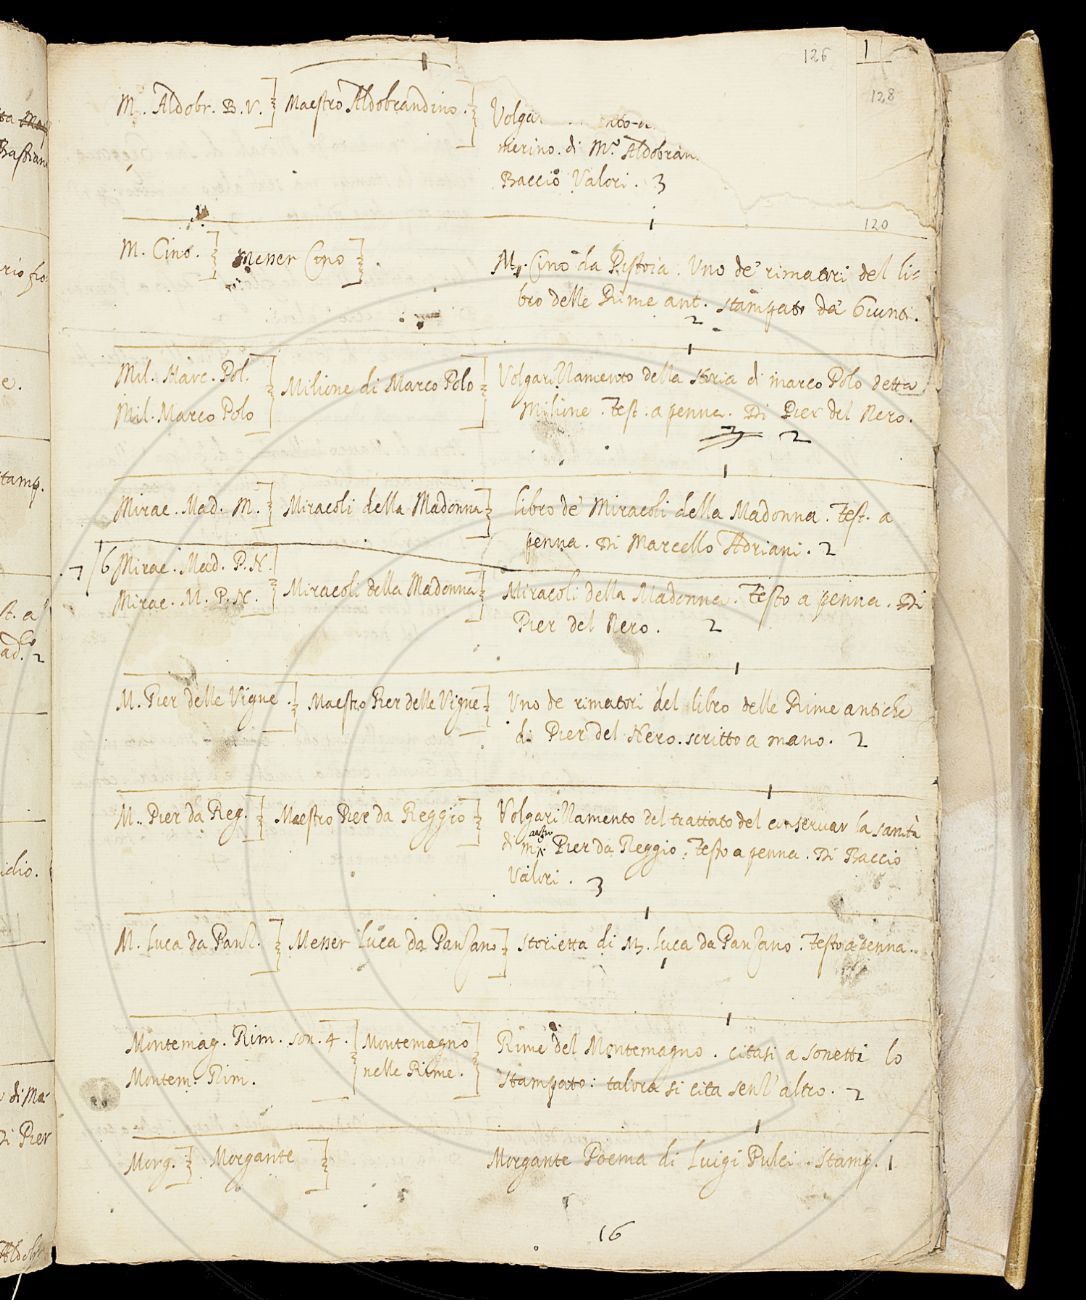 126
1
128
M. Aldobr. B. V. ] Maestro Aldobrandino. ] Volgar
merino. di M.º Aldobran
Baccio Valori. 3
120
M. Cino. ] Messer Cino ] M. Cino da Pistoia. Uno de' rimatori del li-
bro delle Rime ant. stampato da' Giunti.
2
Mil. Marc. Pol. ] Milione di Marco Polo ] Volgarizzamento della storia di Marco Polo detta
Mil. Marco Polo
Milione. Test. a penna. Di Pier del Nero.
2
Mirac. Mad. M. ] Miracoli della Madonna ] libro de' Miracoli della Madonna. Test. a
penna. Di Marcello Adriani. 2
6 Mirac. Mad. P. N.
Mirac. M. P. N. ] Miracoli della Madonna ] Miracoli della Madonna. Testo a penna. Di
Pier del Nero. 2
M. Pier delle Vigne. ] Maestro Pier delle Vigne ] Uno de rimatori del libro delle Rime antiche
di Pier del Nero. scritto a mano. 2
M. Pier da Reg. ] Maestro Pier da Reggio ] Volgarizzamento del trattato del conservar la sanità
di maestro Pier da Reggio. Testo a penna. Di Baccio
Valori. 3
M. Luca da Panz. ] Messer Luca da Panzano ] Storietta di M. Luca da Panzano. Testo a penna.
1
Montemag. Rim. son. 4. [ Montemagno ] Rime del Montemagno. citasi a sonetti lo
Montem. Rim. nelle Rime. stampato: talora si cita senz' altro. 2
Morg. ] Morgante ] Morgante Poema di Luigi Pulci. Stamp. 1
16